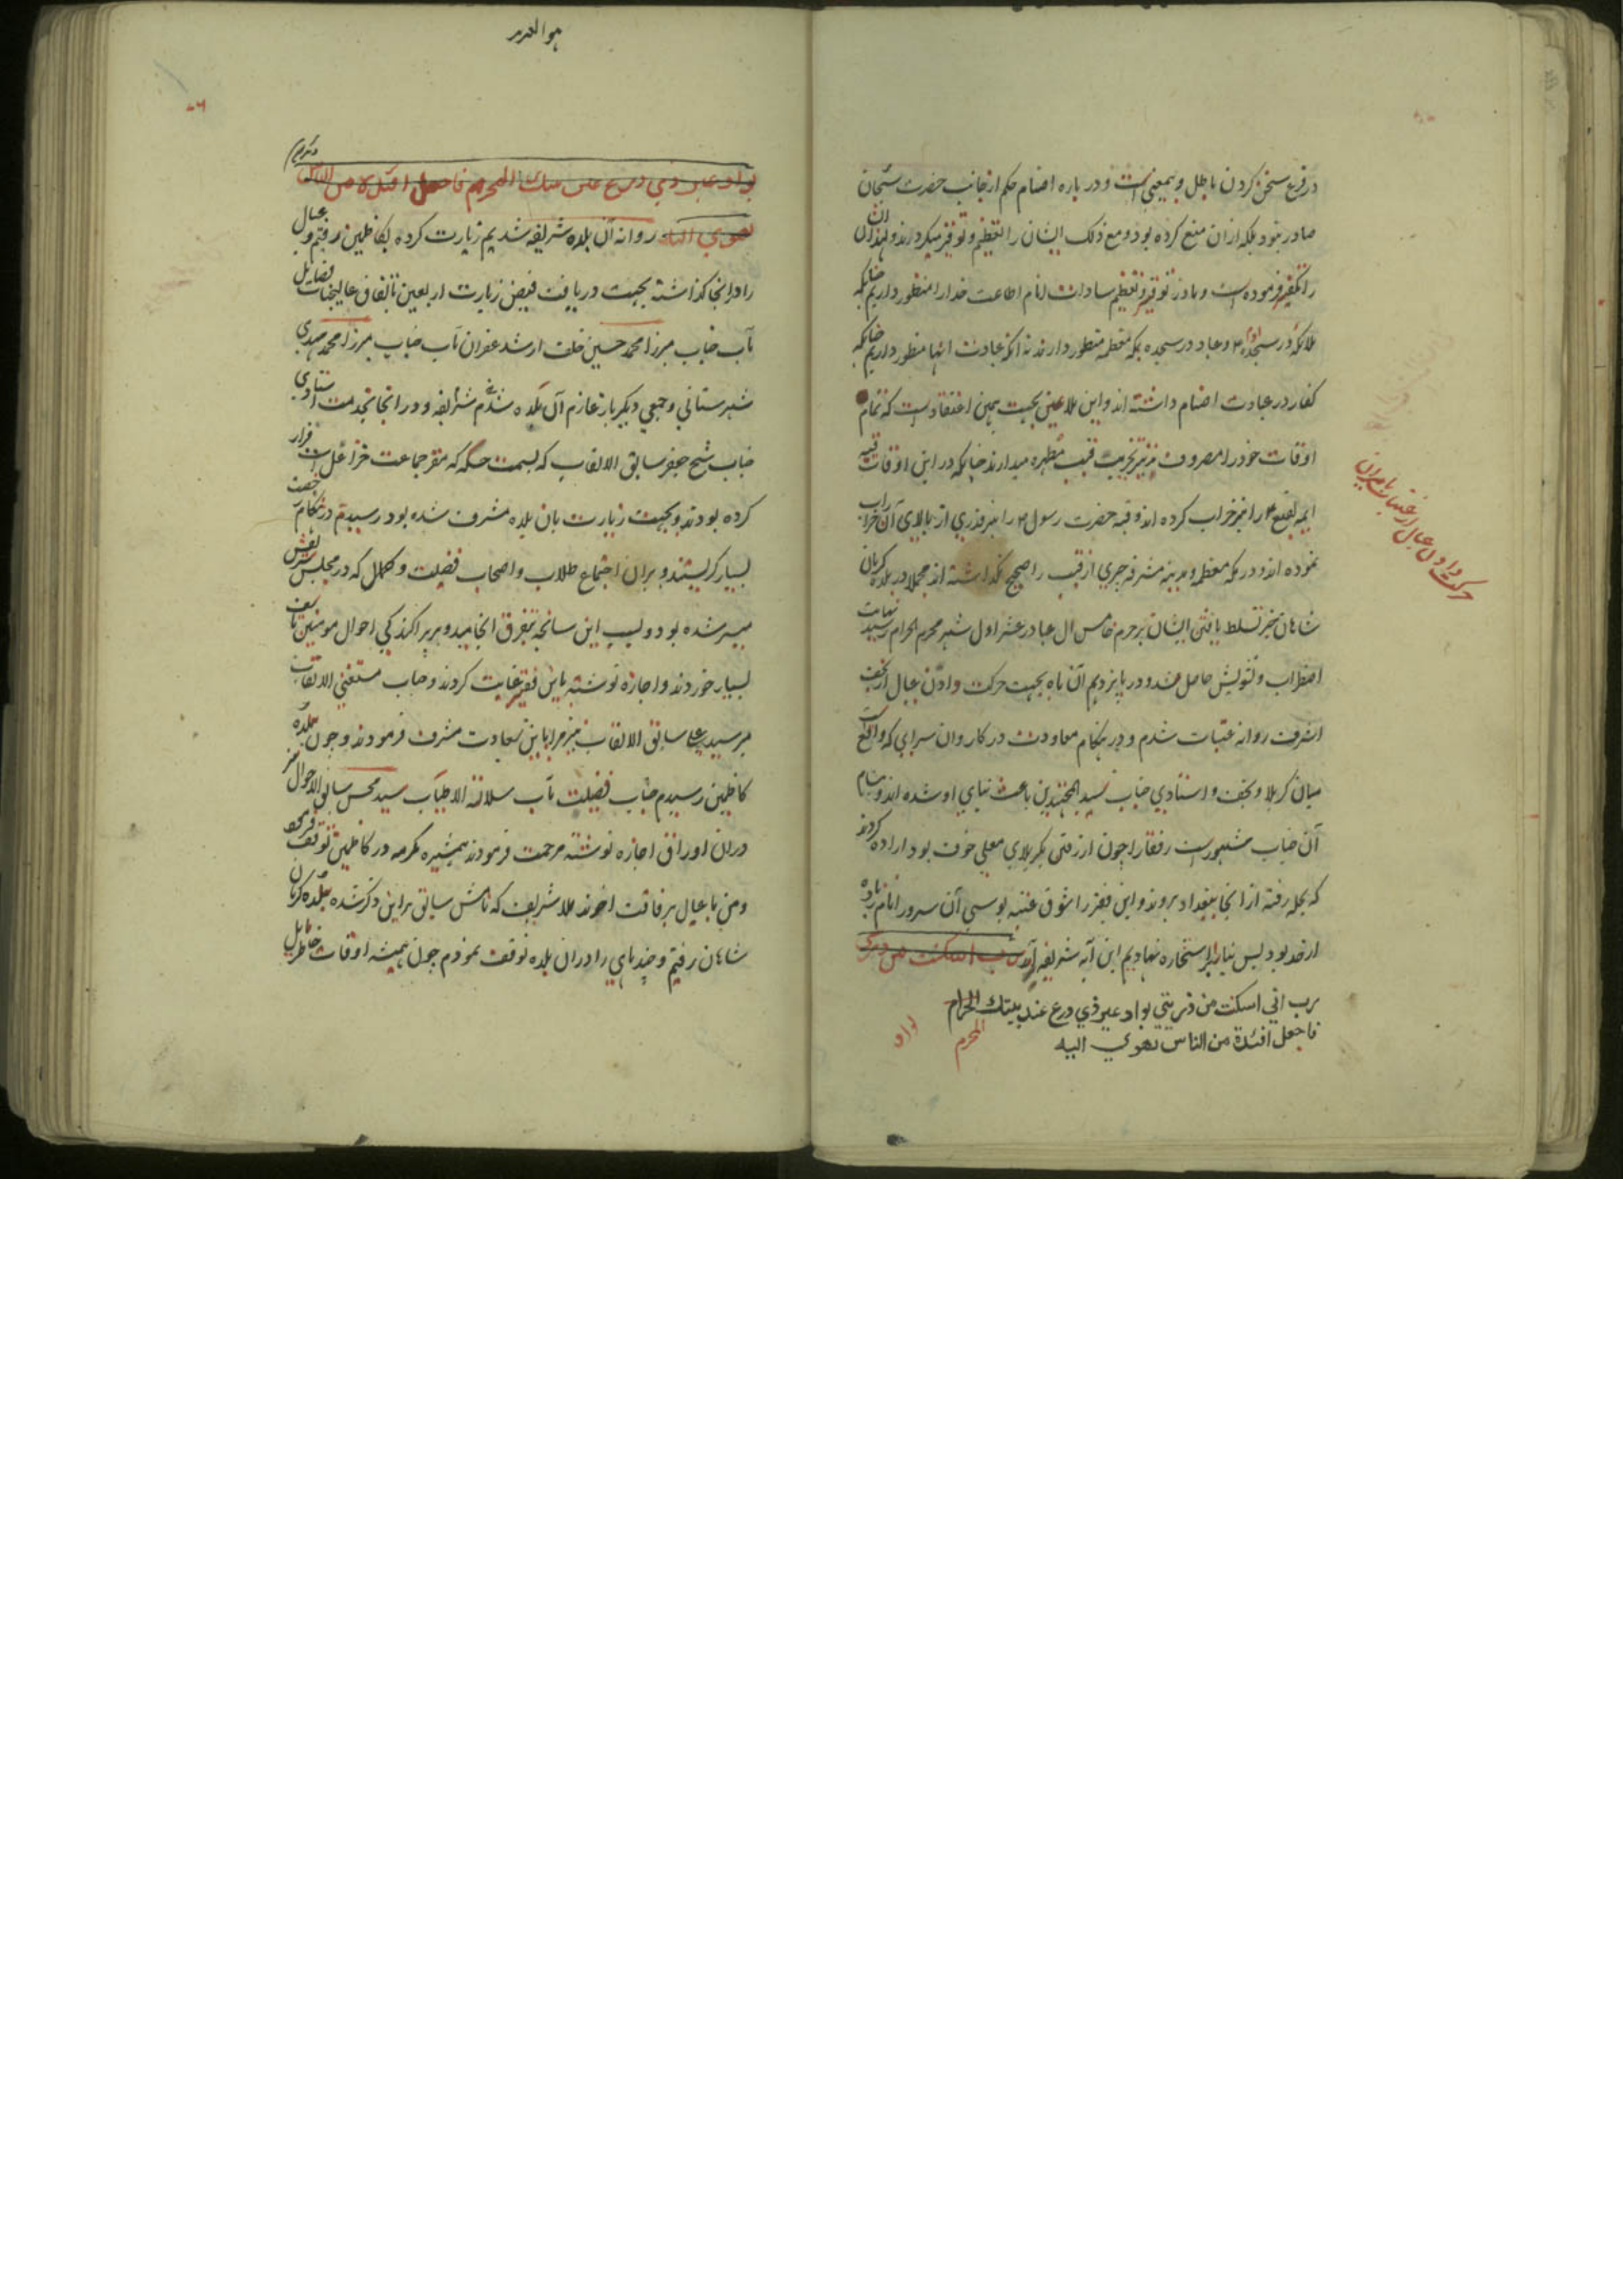 در فرع سخن کردن باطل و بیمعنی است و در باره اصنام حکم از جانب حضرت سبحان
صادر نبود بلکه از ان منع کرده بود و مع ذلک ایشان را تعظیم و توقیر میکردند و لهذا ان
را تکفیر فرموده است و ما در توقیر و تعظیم سادات انام اطاعت خدا را منظور داریم چنانکه
ملائکه در سجده آدم و عباد در سجده بمکه معظمه منظور دارند نه انکه عبادت انها منظور داریم چنانکه
کفار در عبادت اصنام داشته اند و این ملاعین بجهت همین اعتقاد است که تمام
اوقات خود را مصروف بر تخریب قبب مطهره میدارند چنانکه در این اوقات قبه
ایمه بقیع را نیز خراب کرده اند و قبه حضرت رسول را نیز قدری از بالای آن خراب
نموده اند و در مکه معظمه و مدینه مشرفه چیزی از قبب را صحیح نگذاشته اند مجملا در بلده کرمان
شاهان خبر تسلط یافتن ایشان بر حرم خامس ال عبا در عشر اول شهر محرم الحرام رسید نهایت
اضطراب و تشویش حاصل شد و در پانزدیم آن ماه بجهت حرکت دادن عیال از نجف
اشرف روانه عتبات شدم و در هنکام معاودت در کاروان سرایی که واقع است
میان کربلا و نجف و استادی جناب سید المجتهدین باعث بنای او شده اند و بنام
آن جناب مشهور است رفقا را چون از رفتن بکربلای معلی خوف بود اراده کردند
که بحله رفته از انجا ببغداد بروند و این فقیر را شوق عتبه بوسی آن سرور انام زیاده
از حد بود پس بنا را بر استخاره نهادیم این آیه شریفه آمد رب انی اسکنت من ذریتی
رب انی اسکنت من ذریتی بواد غیر ذی زرع عند بیتك الحرام
المحرم
فاجعل افئدة من الناس تهوی الیه
حرکت دادن عیال از عتبات بایران
هو العزیز
بواد غیر ذی زرع عند بیتك المحرم فاجعل افئدة من الناس
تهوی الیه روانه آن بلده شریفه شدیم زیارت کرده بکاظمین رفتم و عیال
را در انجا کذاشته بجهت دریافت فیض زیارت اربعین باتفاق عالیجناب فضایل
مآب جناب میرزا محمد حسین خلف ارشد غفران مآب جناب میرزا محمد مهدی
شهرستانی و جمعی دیکر باز عازم آن بلده شریفه شدم و در انجا بخدمت استادی
جناب شیخ جعفر سابق الالقاب که بسمت حسکه که مقر جماعت خزاعل است فرار
کرده بودند و بجهت زیارت بان بلده مشرف شده بود رسیدم در هنکام رخصت
بسیار کریستند و بران اجتماع طلاب و اصحاب فضیلت و کمال که در مجلس شریفش
میسر شده بود و بسبب این سانحه بتفرق انجامید و بر پراکندکی احوال مومنین تاسف
بسیار خوردند و اجازه نوشته باین فقیر عنایت کردند و جناب مستغنی الالقاب
میر سید علی سابق الالقاب نیز مرا باین سعادت مشرف فرمودند و چون ببلده
کاظمین رسیدم جناب فضیلت مآب سلالة الاطیاب سید محسن سابق الاحوال نیز
دران اوراق اجازه نوشته مرحمت فرمودند همشیره مکرمه در کاظمین توقف فرمود
و من با عیال برفاقت اخوند ملا شریف که نامش سابق براین ذکر شده ببلده کرمان
شاهان رفتم و چند ماهی را دران بلده توقف نمودم چون همیشه اوقات خاطر مایل